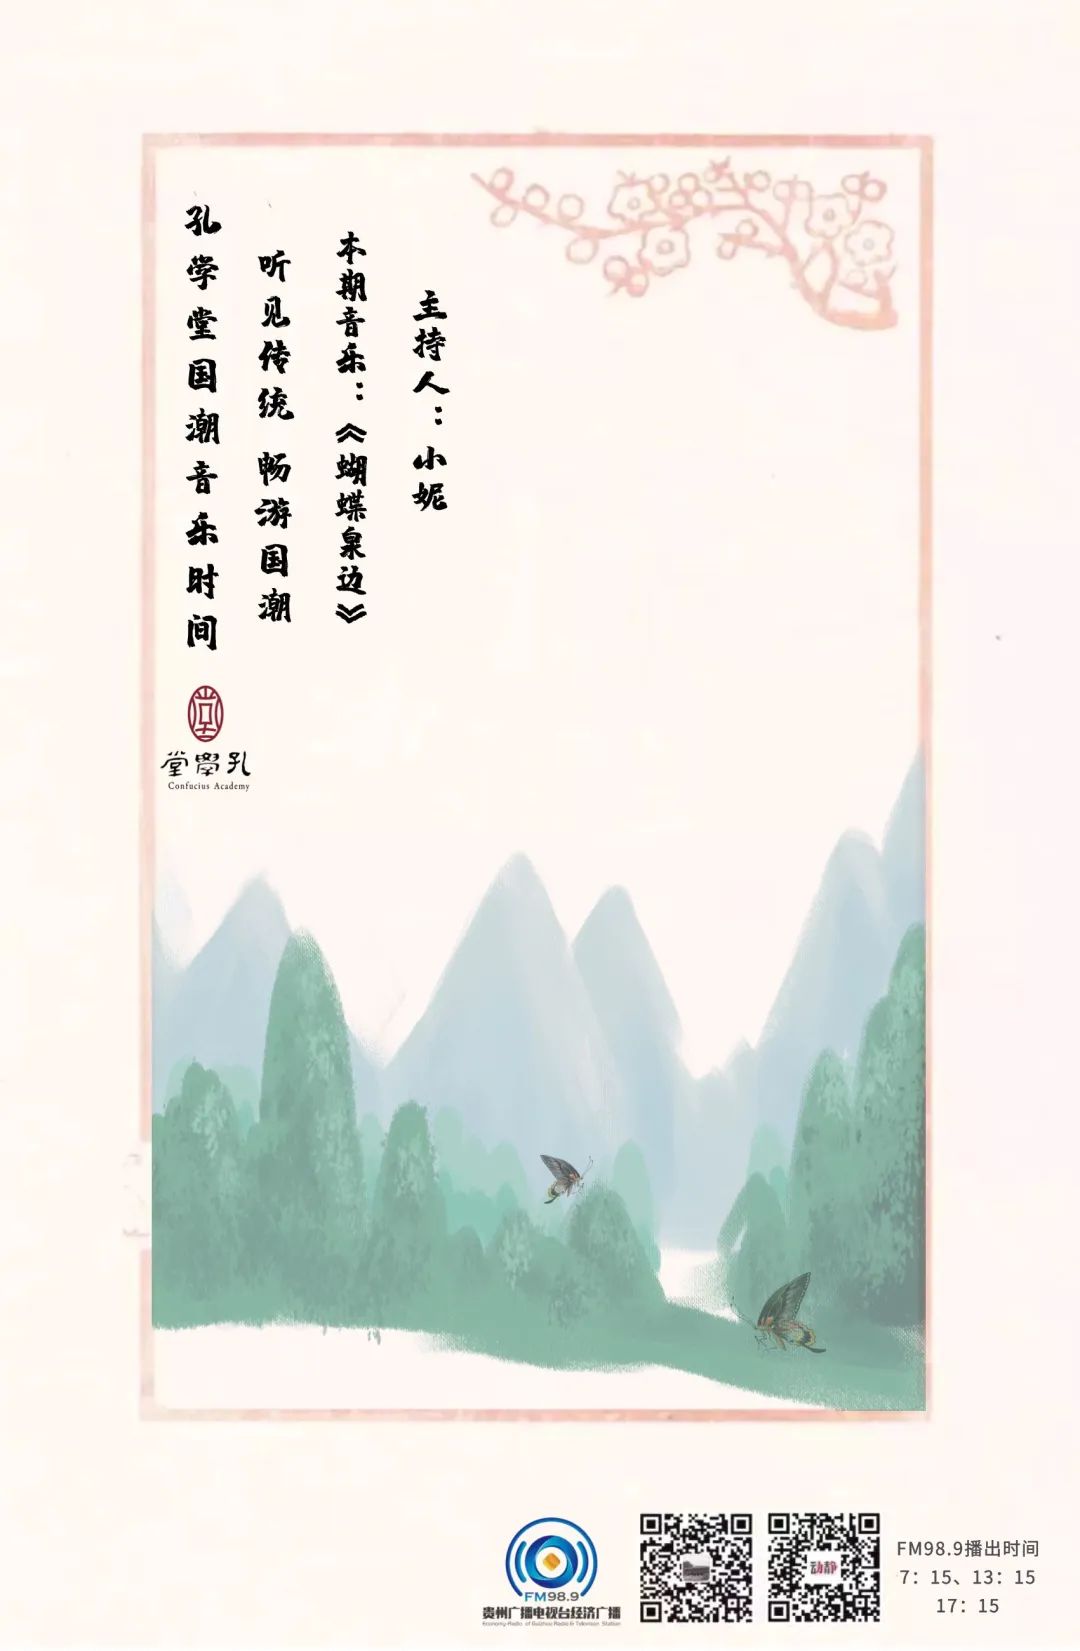 孔学堂国潮音乐时间
听见传统 畅游国潮
本期音乐：《蝴蝶泉边》
主持人：小妮
堂學孔
Confucius Academy
FM98.9
贵州广播电视台经济广播
Economy-Radio of Guizhou Radio & Television Station
动静
FM98.9播出时间
7：15、13：15
17：15